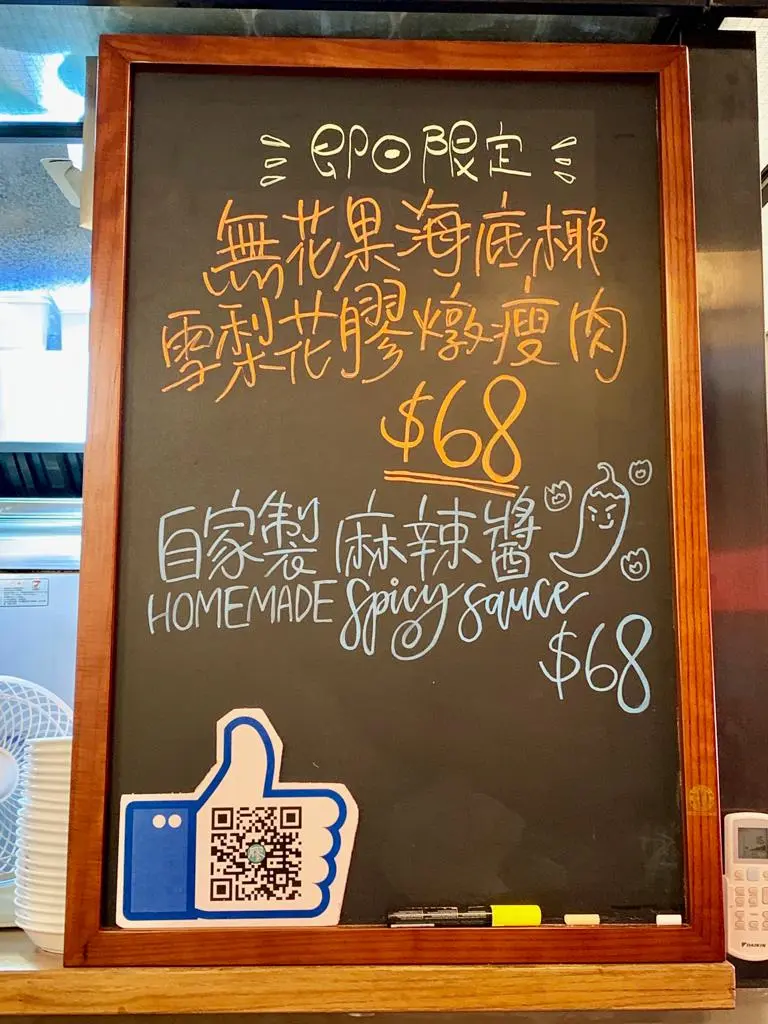 即日限定
無花果海底椰
雪梨花膠燉瘦肉
$68
自家製麻辣醬
HOMEMADE spicy sauce
$68
DAIKIN